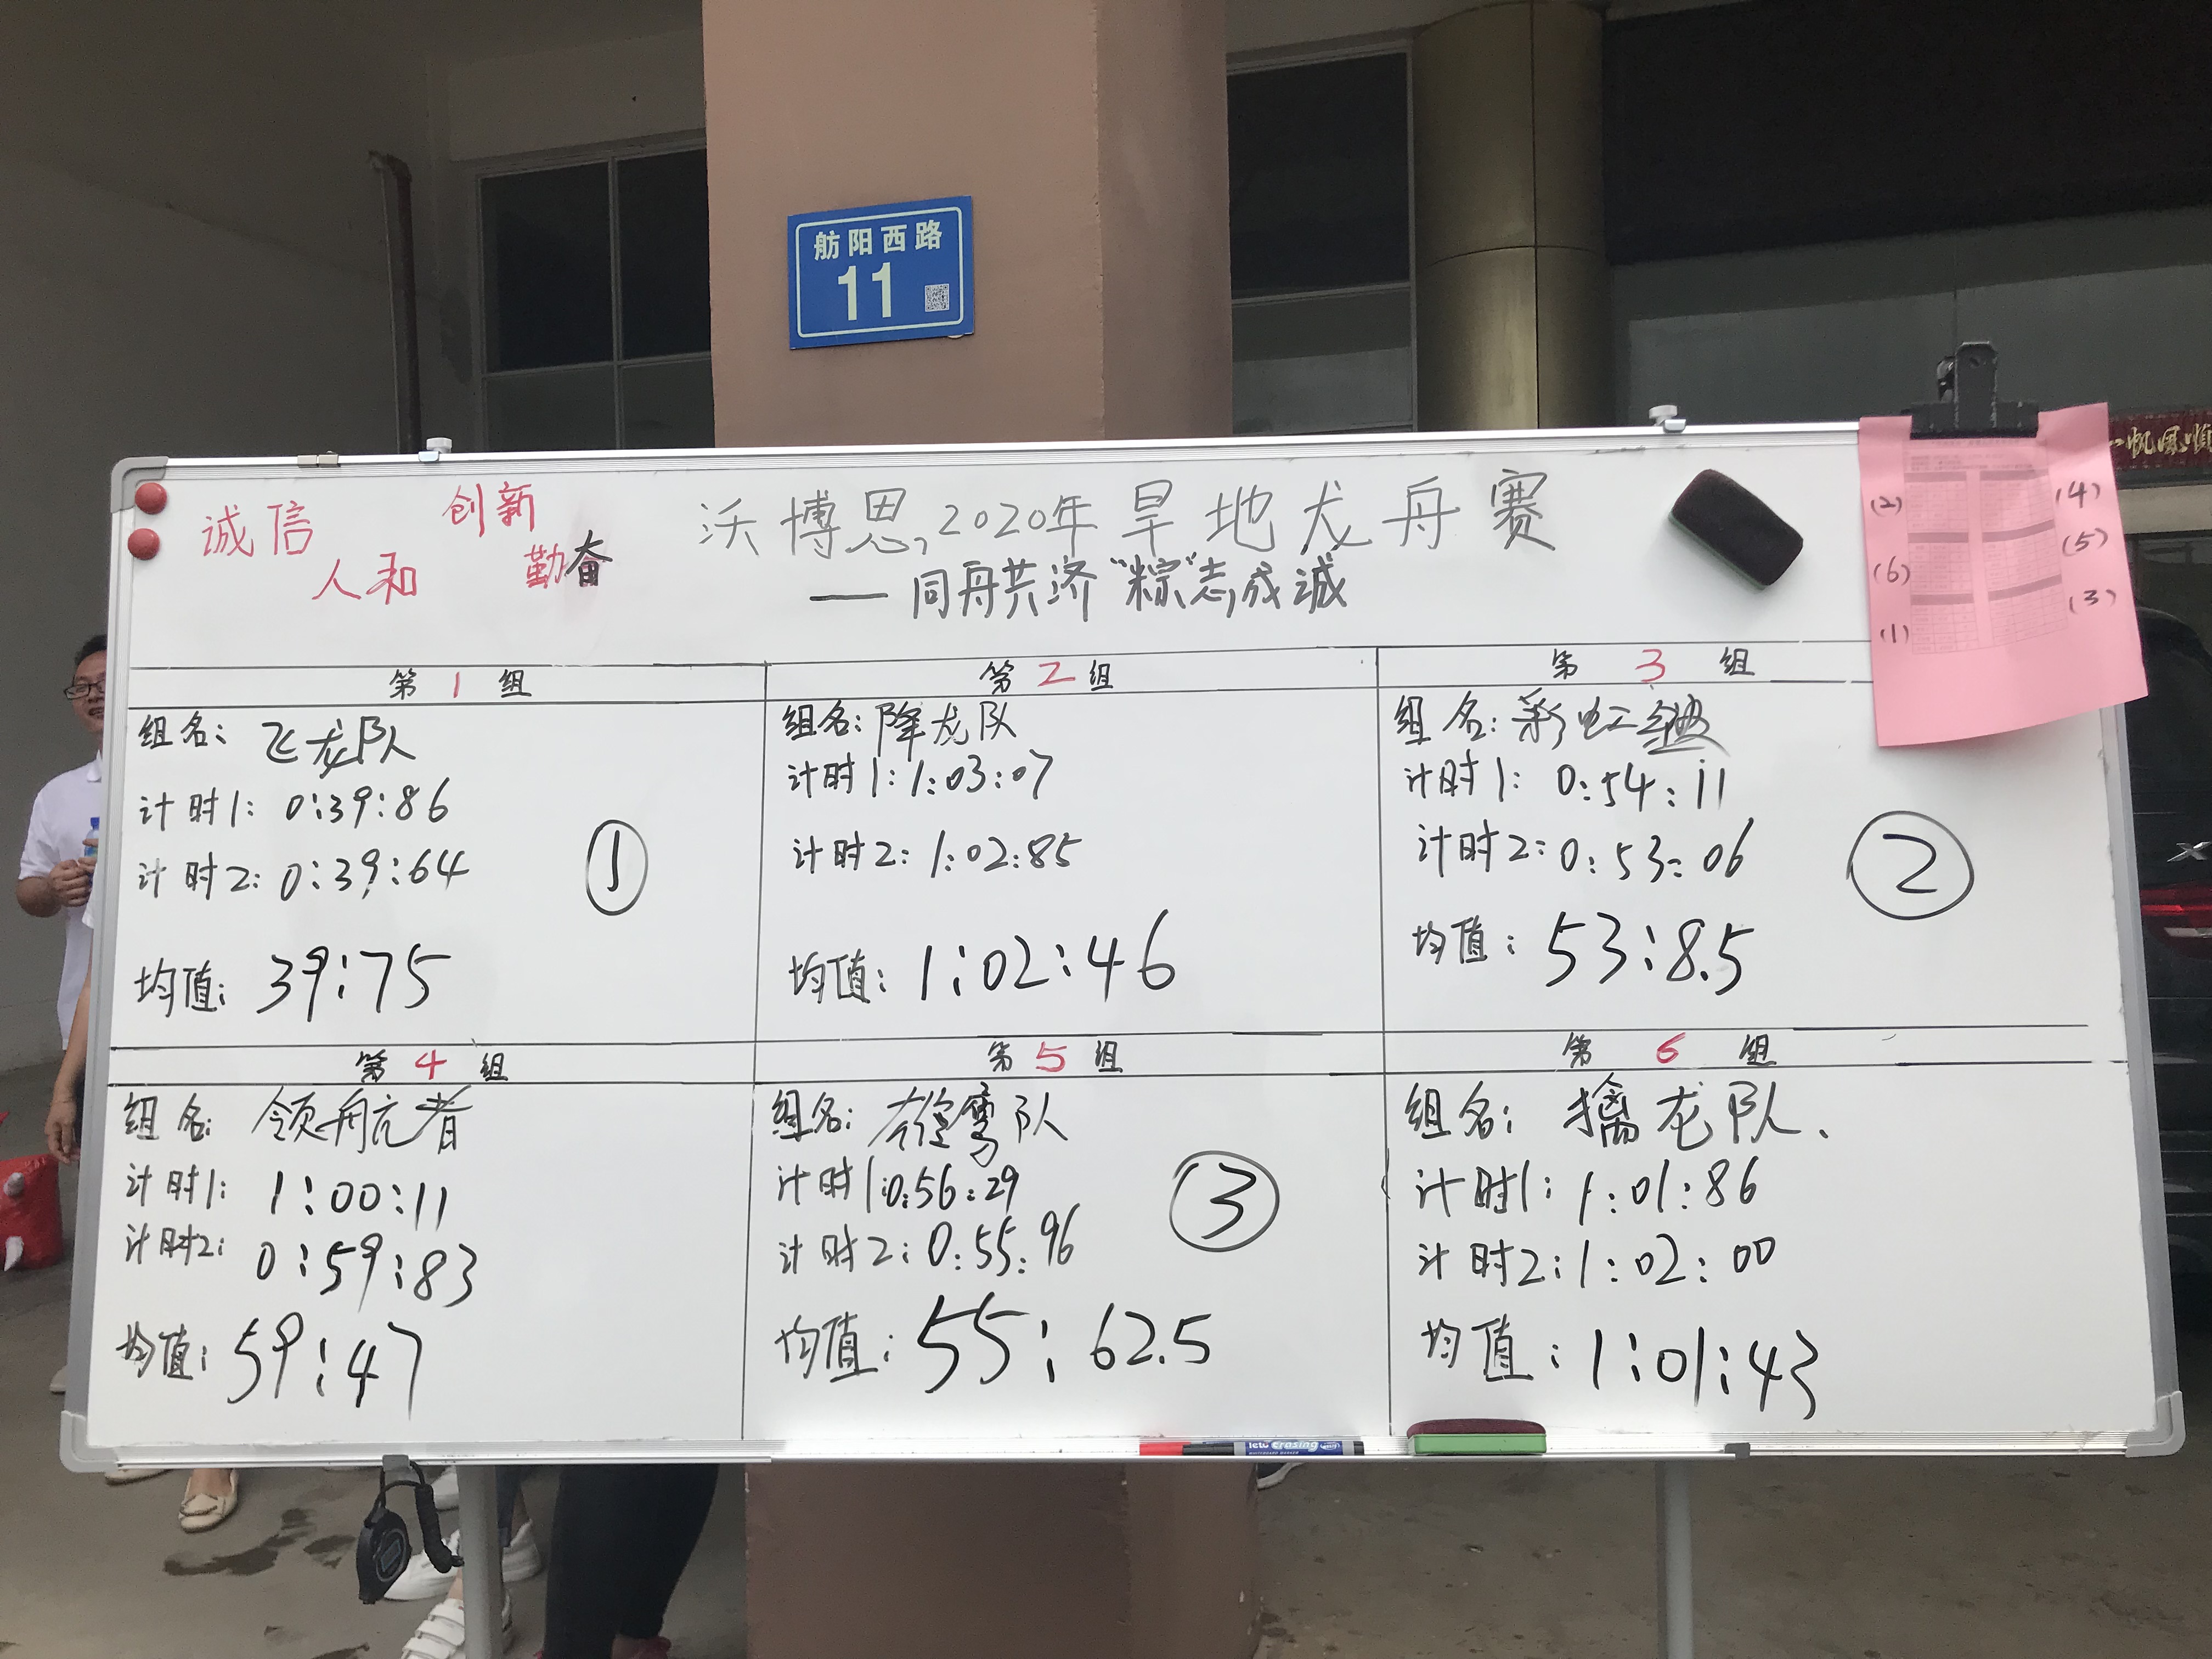 舫阳西路
11
一帆风顺
诚信 创新
人和 勤奋
沃博思,2020年旱地龙舟赛
——同舟共济“粽”志成诚
(2) (4)
(6) (5)
(1) (3)
第1组
组名: 飞龙队
计时1: 0:39:86
计时2: 0:39:64
①
均值: 39:75
第2组
组名: 降龙队
计时1: 1:03:07
计时2: 1:02:85
均值: 1:02:46
第3组
组名: 彩虹
计时1: 0:54:11
计时2: 0:53:06
②
均值: 53:8.5
第4组
组名: 领航者
计时1: 1:00:11
计时2: 0:59:83
均值: 59:47
第5组
组名: 雄鹰队
计时1: 0:56:29
计时2: 0:55:96
③
均值: 55:62.5
第6组
组名: 擒龙队、
计时1: 1:01:86
计时2: 1:02:00
均值: 1:01:43
erasing